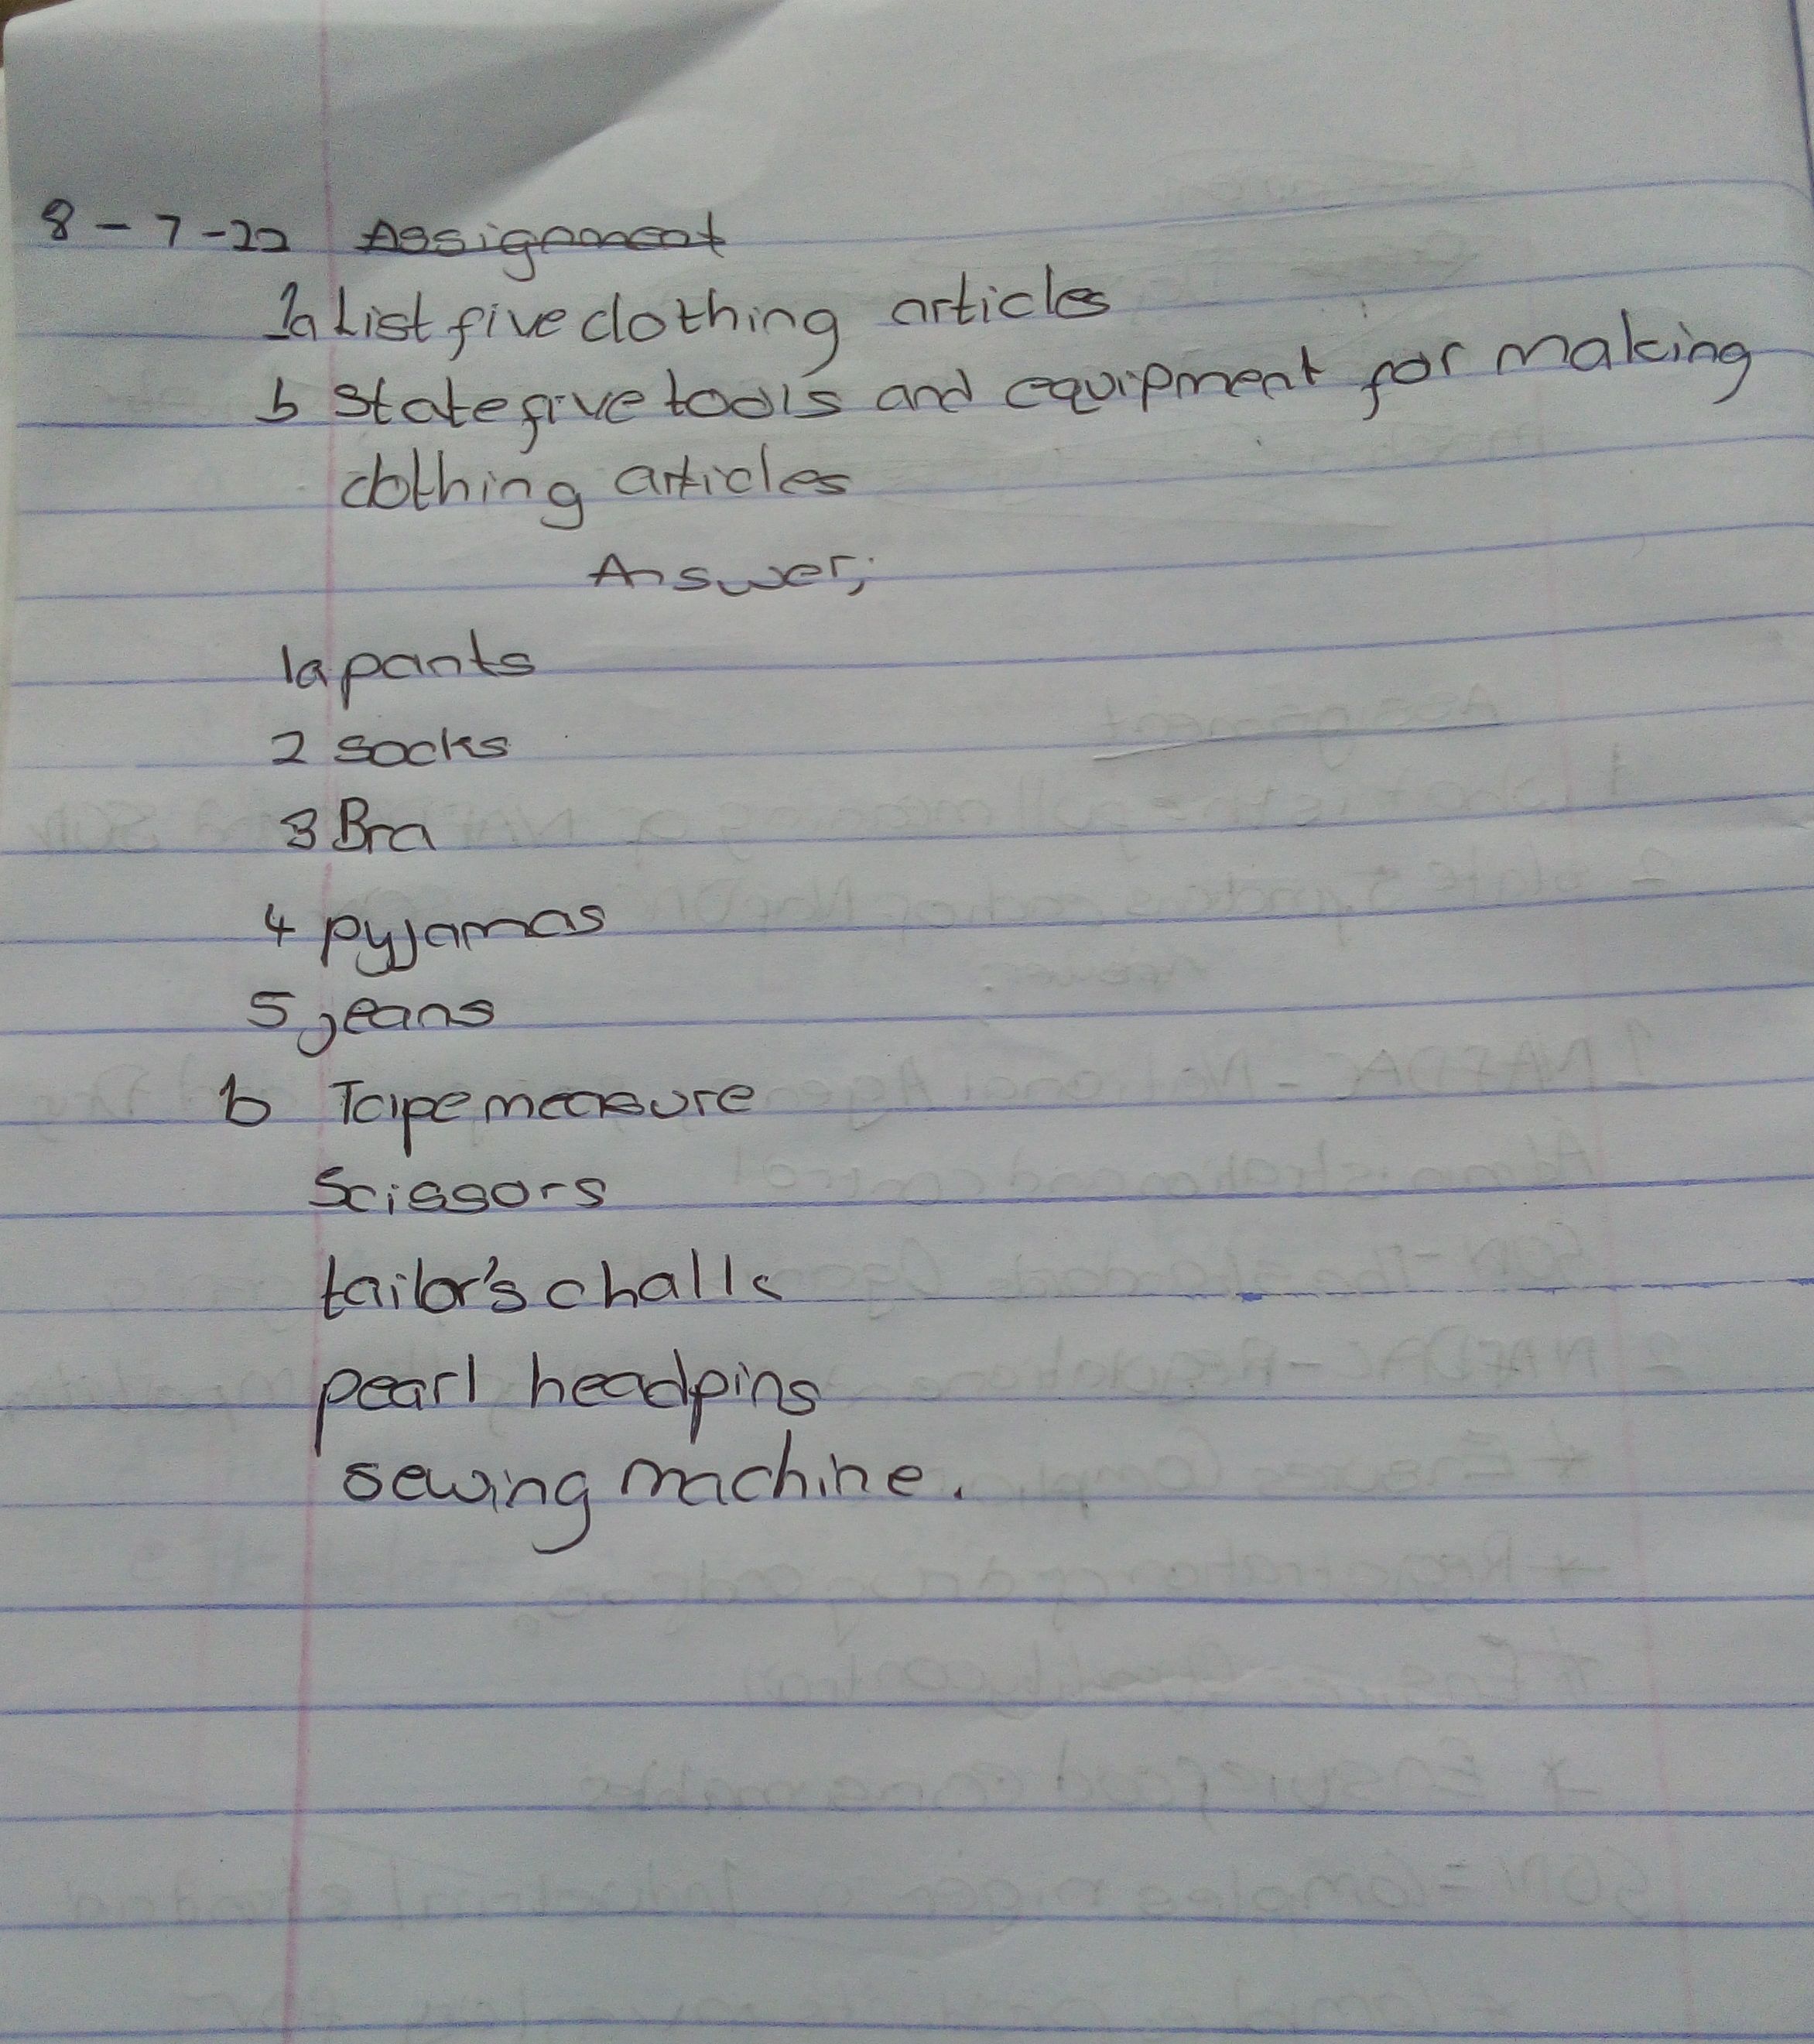 8-7-22 Assignment
1a List five clothing articles
b State five tools and equipment for making
clothing articles
Answer;
1a pants
2 socks
3 Bra
4 pyjamas
5 jeans
b Tape measure
Scissors
tailor's chalk
pearl headpins
sewing machine.